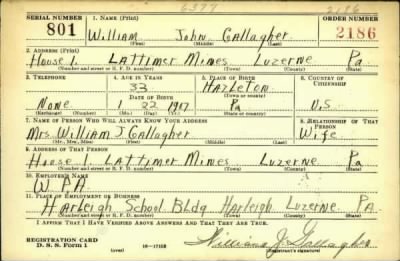 6377 2186
SERIAL NUMBER 1. NAME (Print) ORDER NUMBER
801 William John Gallagher 2186
(First) (Middle) (Last)
2. ADDRESS (Print)
House 1. Lattimer Mines Luzerne Pa
(Number and street or R. F. D. number) (Town) (County) (State)
3. TELEPHONE 4. AGE IN YEARS 5. PLACE OF BIRTH 6. COUNTRY OF CITIZENSHIP
33 Hazleton
DATE OF BIRTH (Town or county)
None 1 22 1907 Pa U.S
(Exchange) (Number) (Mo.) (Day) (Yr.) (State or country)
7. NAME OF PERSON WHO WILL ALWAYS KNOW YOUR ADDRESS 8. RELATIONSHIP OF THAT PERSON
Mrs. William J. Gallagher Wife
(Mr., Mrs., Miss) (First) (Middle) (Last)
9. ADDRESS OF THAT PERSON
House 1 Lattimer Mines Luzerne Pa
(Number and street or R. F. D. number) (Town) (County) (State)
10. EMPLOYER'S NAME
W PA
11. PLACE OF EMPLOYMENT OR BUSINESS
Harleigh School Bldg Harleigh Luzerne PA
(Number and street or R. F. D. number) (Town) (County) (State)
I AFFIRM THAT I HAVE VERIFIED ABOVE ANSWERS AND THAT THEY ARE TRUE.
REGISTRATION CARD
D. S. S. Form 1 (over) 16—17105 William J. Gallagher